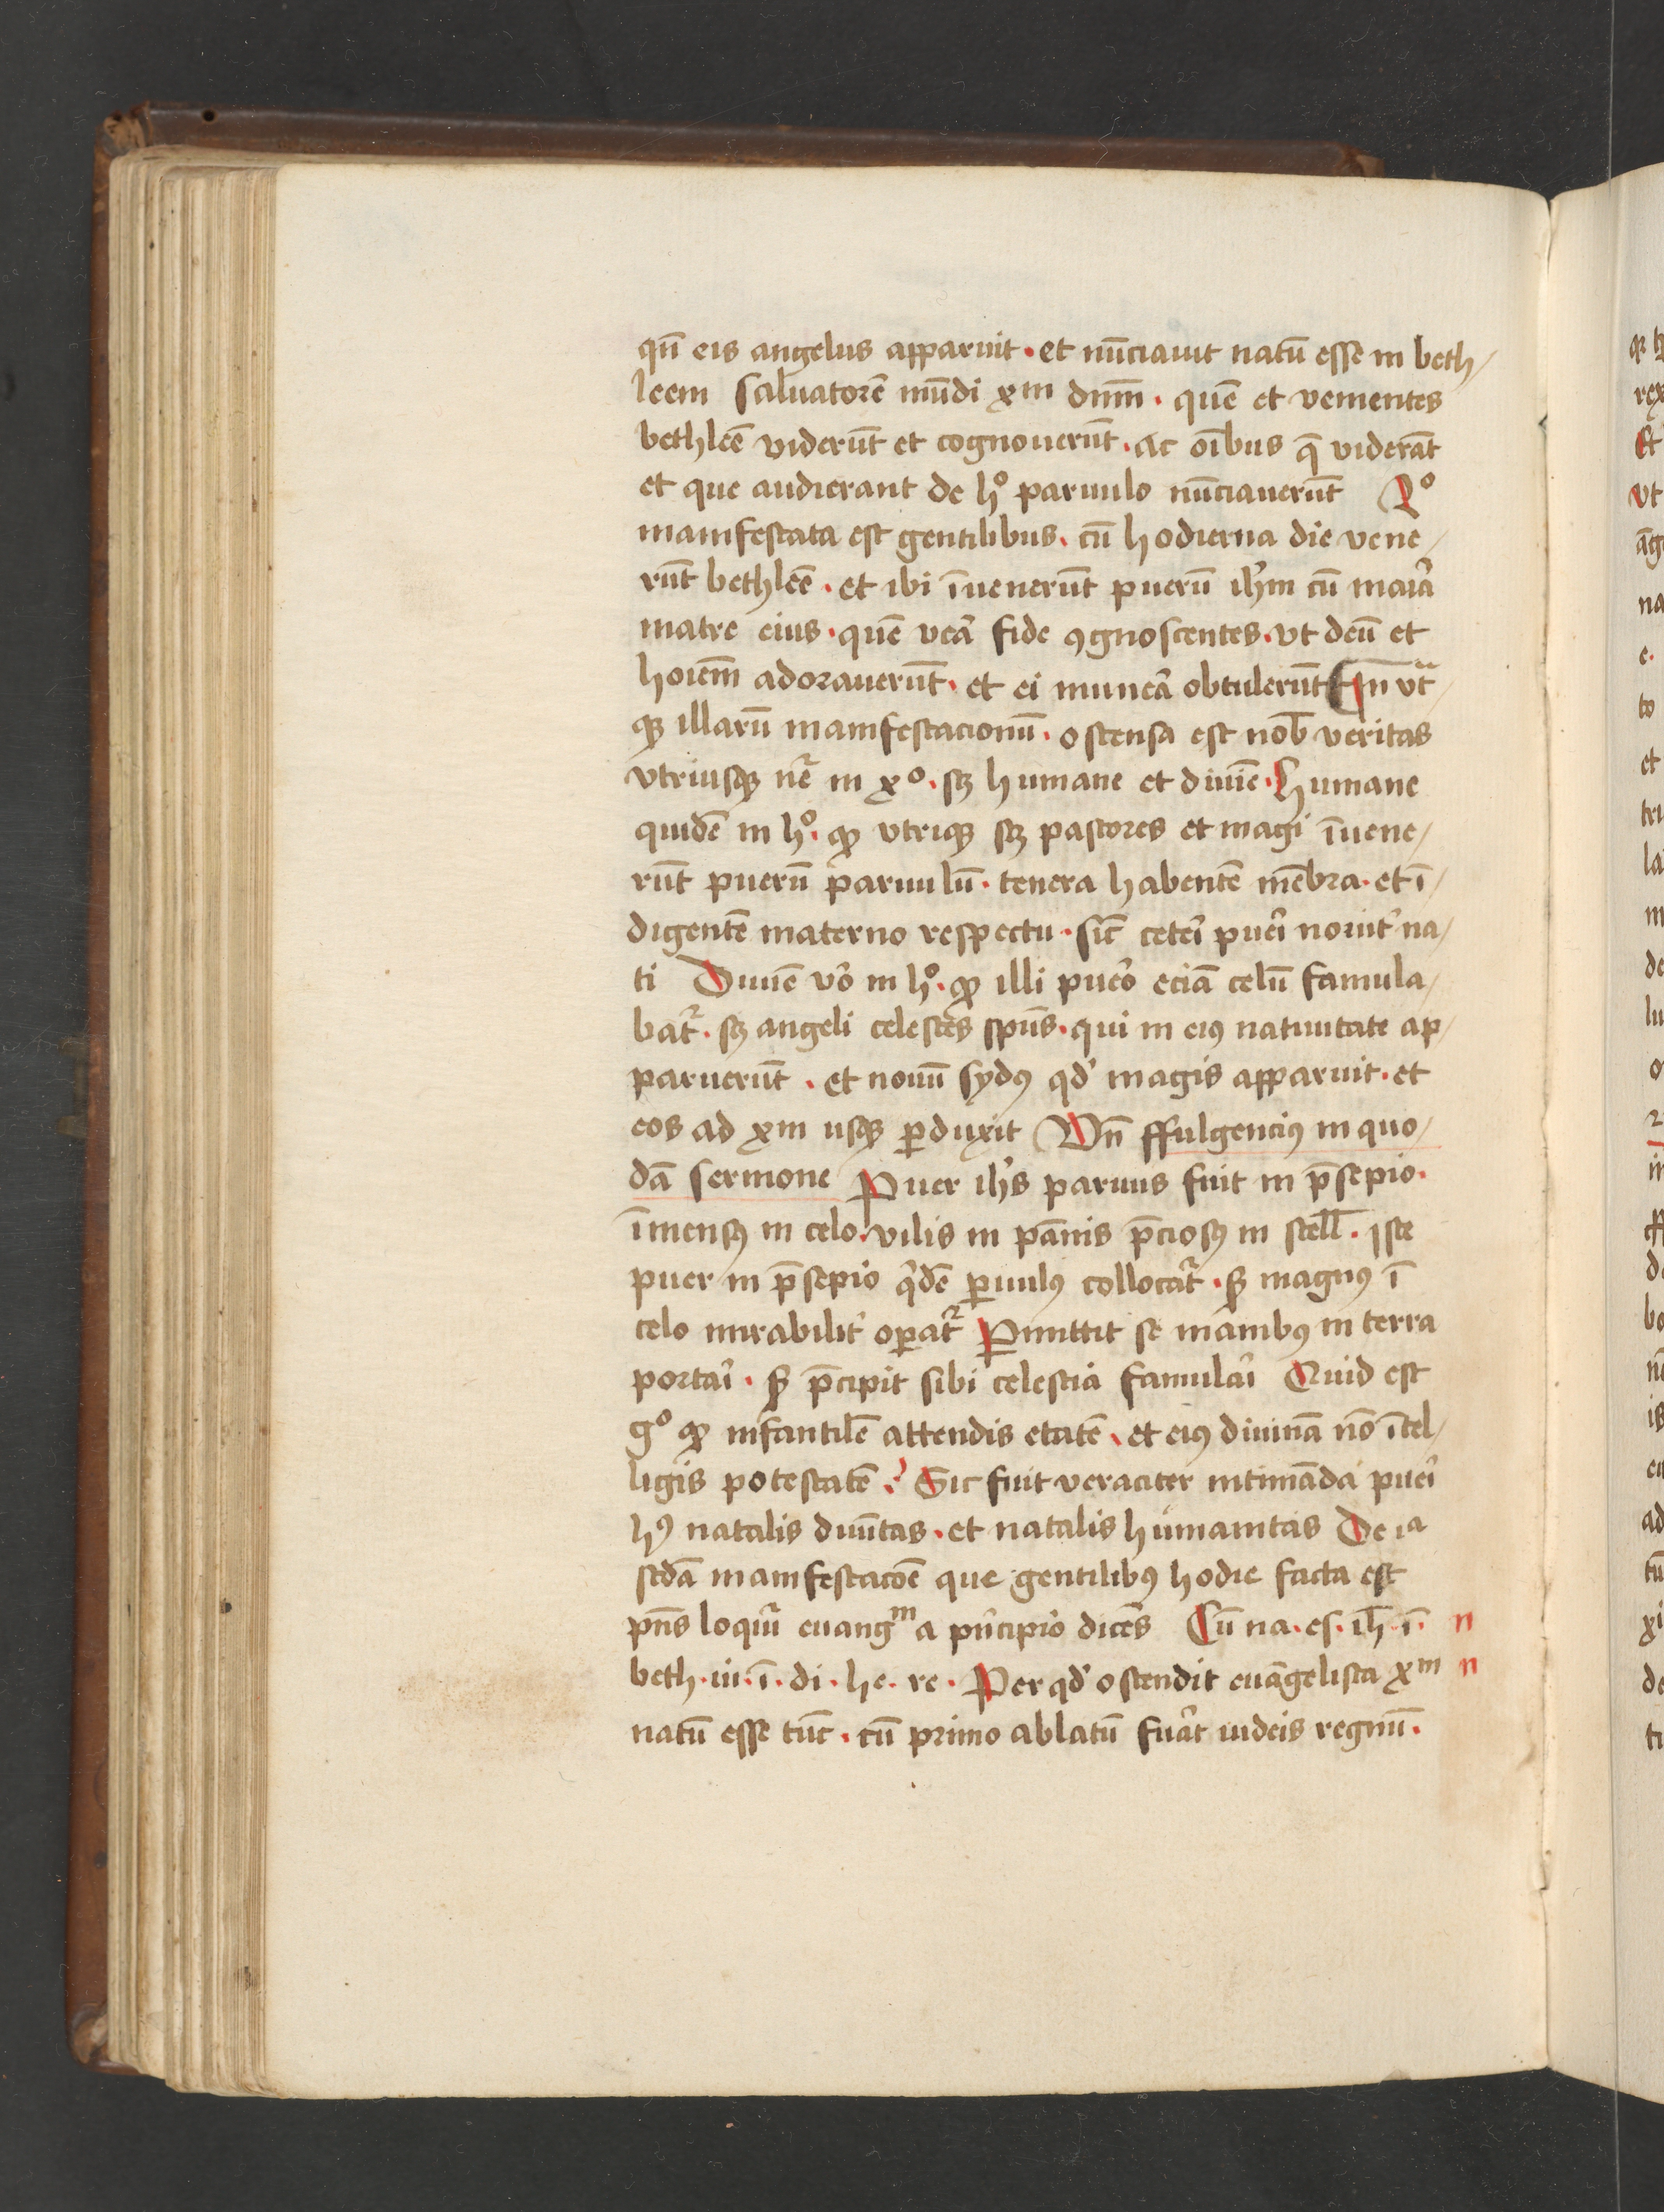 qn̄ eis angelus apparuit · et nūciauit natū esse in beth/
leem saluatorē mūdi xpm dnm̄ · quē et venientes
bethleē viderūt et cognouerūt · ac oībus q̄ viderāt
et que audierant de hº paruulo nūciauerūt 2º
manifestata est gentilibus · cū hodierna die vene/
rūt bethleē · et ibi īuenerūt puerū ihm̄ cū maīa
matre eius · quē vea᷑ fide ꝯgnoscentes · vt deū et
hoiem̄ adorauerūt · et ei munea᷑ obtulerūt In vt̄/
qꝫ illarū manifestacionū · ostensa est nob̄ veritas
vtriusqꝫ nr̄e in xº · sꝫ humane et diuīe · Humane
quidē in hº · qꝫ vtrique sꝫ pastores et magi īuene/
rūt puerū paruulū · tenera habentē mēbra · et ī/
digentē materno respectu · sic̄ ceteī pueī nouit᷑ na/
ti Diuīe vō in hº · qꝫ illi pueō eciā celū famula/
bat᷑ · sꝫ angeli celestes spūs · qui in eiꝰ natiuitate ap/
paruerūt · et nouū sydꝰ qd̓ magis apparuit · et
eos ad xpm usqꝫ ꝑduxit Vn̄ ffulgenciꝰ in quo/
dā sermone Puer ihs̄ paruus fuit in p̄sepio ·
īmensꝰ in celo · vilis in pānis p̄ciosꝰ in stell̄ · iste
puer in p̄sepio q̇dē ꝑuulꝰ collocat᷑ · sꝫ magnꝰ ī
celo mirabilit᷑ oꝑat᷑ Ꝑmittit se manibꝰ in terra
portaī · sꝫ p̄cipit sibi celestia famulaī Quid est
gº qꝫ infantilē attendis etatē · et eiꝰ diuinā nō ītel/
ligis potestatē ? Sic fuit veraciter intimāda pueī
hꝰ natalis diuītas · et natalis humanitas De ia
scdā manifestacōe que gentilibꝰ hodie facta est
pn̄s loquit᷑ euangm a pͥncipio dicēs Cū na · es · ih̄ · ī · n
beth · iu · ī · di · he · re · Per qd̓ ostendit euāgelista xm n
natū esse tūc · cū primo ablatū fuāt iudeis regnū ·